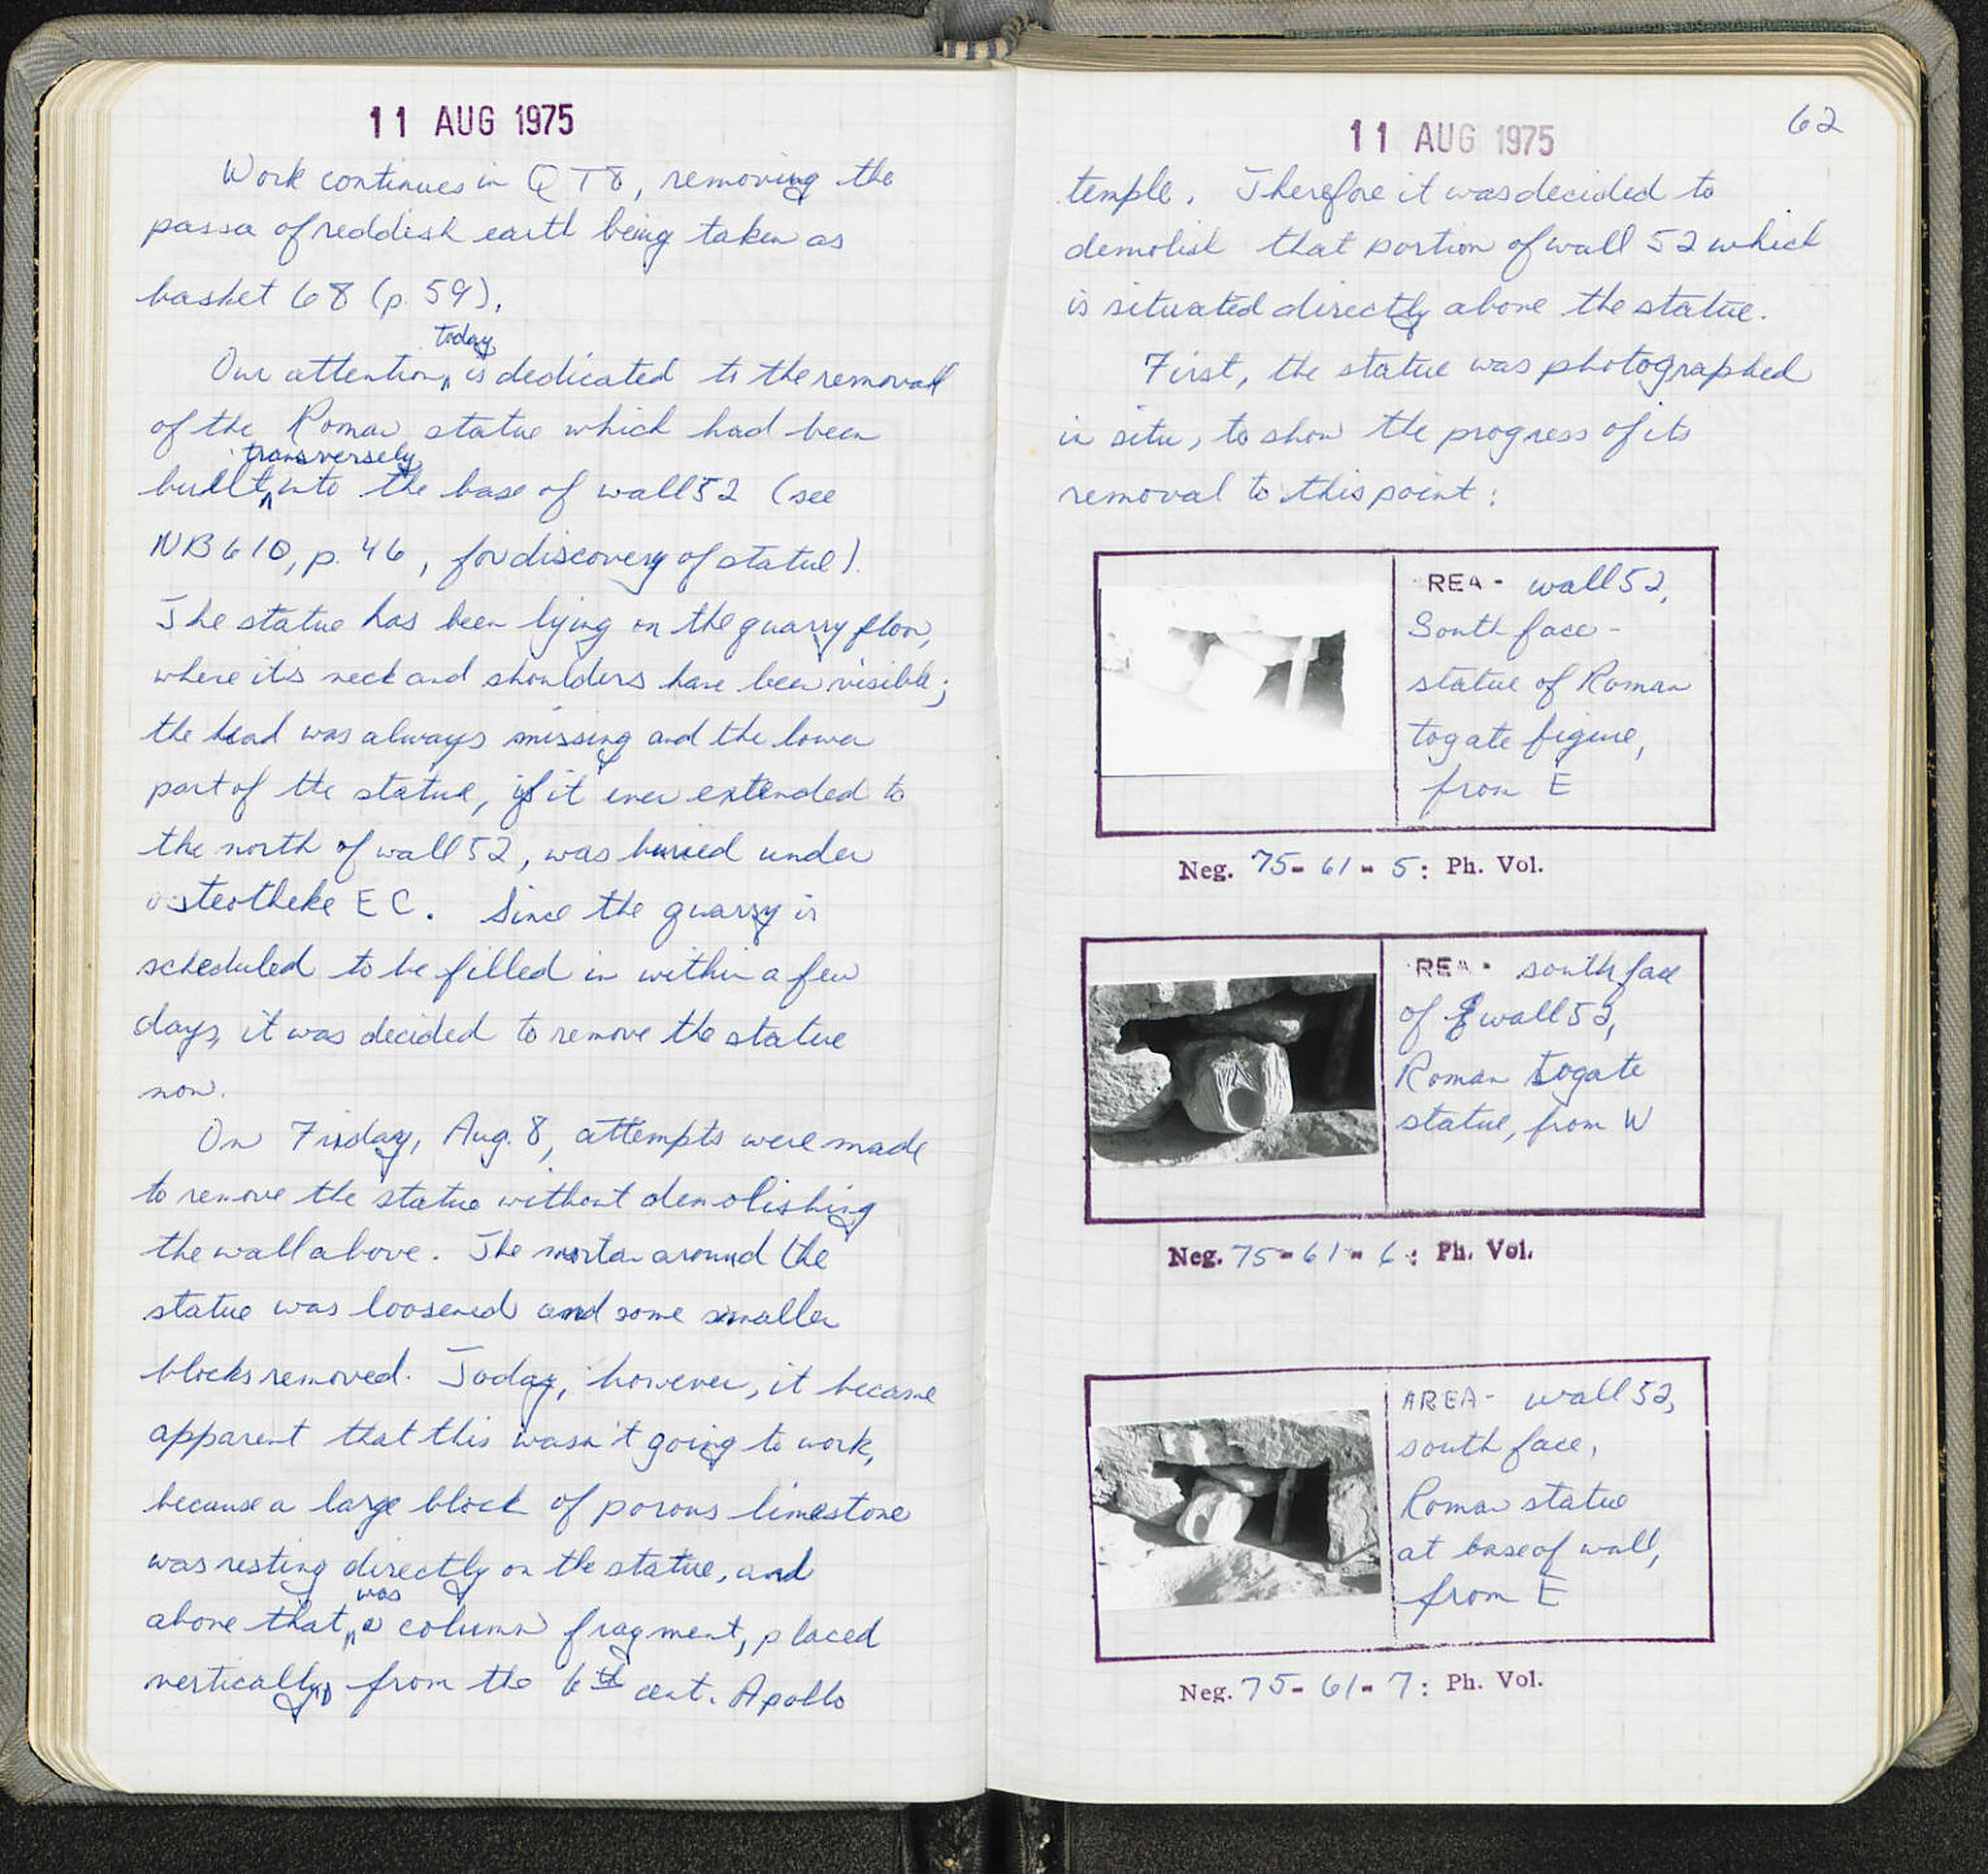 11 AUG 1975
Work continues in QT8, removing the
passa of reddish earth being taken as
basket 68 (p. 59).
Our attention today is dedicated to the removal
of the Roman statue which had been
built transversely into the base of wall 52 (see
NB 610, p. 46, for discovery of statue).
The statue has been lying on the quarry floor,
where its neck and shoulders have been visible;
the head was always missing and the lower
part of the statue, if it ever extended to
the north of wall 52, was buried under
osteotheke EC. Since the quarry is
scheduled to be filled in within a few
days, it was decided to remove the statue
now.
On Friday, Aug. 8, attempts were made
to remove the statue without demolishing
the wall above. The mortar around the
statue was loosened and some smaller
blocks removed. Today, however, it became
apparent that this wasn't going to work,
because a large block of porous limestone
was resting directly on the statue, and
above that was a column fragment, placed
vertically, from the 6th cent. Apollo
62
11 AUG 1975
temple. Therefore it was decided to
demolish that portion of wall 52 which
is situated directly above the statue.
First, the statue was photographed
in situ, to show the progress of its
removal to this point:
REA - wall 52,
South face -
statue of Roman
togate figure,
from E
Neg. 75-61-5: Ph. Vol.
REA - south face
of wall 52,
Roman togate
statue, from W
Neg. 75-61-6: Ph. Vol.
AREA - wall 52,
south face,
Roman statue
at base of wall,
from E
Neg. 75-61-7: Ph. Vol.